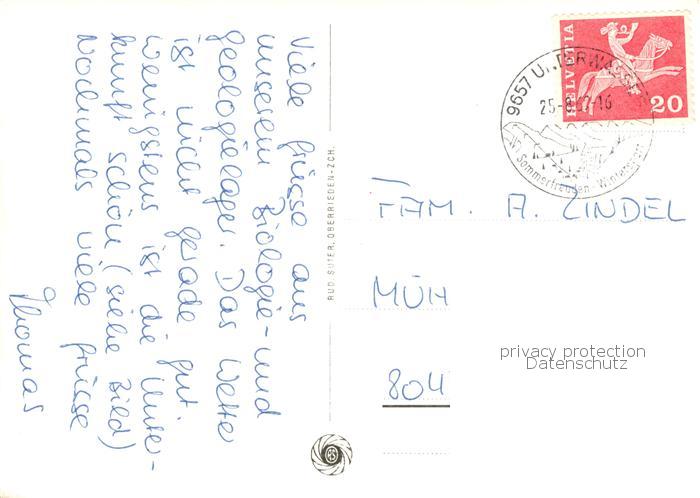 Viele Grüsse aus
unserem Biologie- und
Geologielager. Das Wetter
ist nicht gerade gut
wenigstens ist die Unter-
kunft schön (siehe Bild)
Nochmals viele Grüsse
Thomas
RUD. SUTER, OBERRIEDEN-ZCH.
HELVETIA
20
9657 UNTERWASSER
25-8
-16
Sommerfreuden - Wintersport
FAM. A. ZINDEL
MÜH
804
privacy protection
Datenschutz